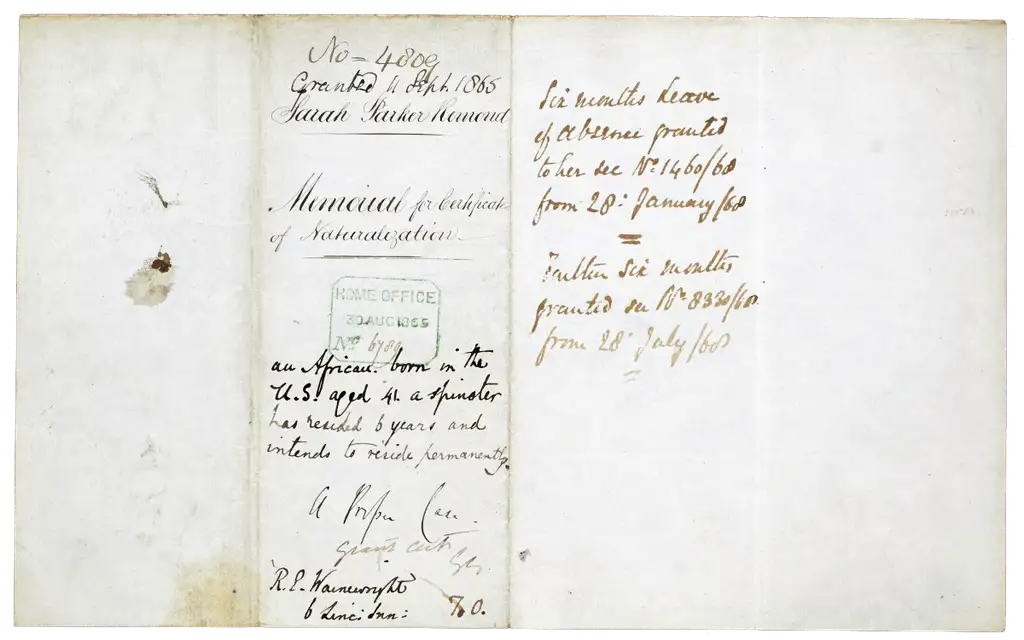 No = 4809
Granted 11 Sept. 1865
Sarah Parker Remond
Memorial for Certificate
of Naturalization
HOME OFFICE
30 AUG 1865
No 6789
an African. born in the
U.S. aged 41. a spinster
has resided 6 years and
intends to reside permanently.
A Proper Case.
grant cert
R.E. Wainewright
6 Linc: Inn:
7.0.
Six months Leave
of Absence granted
to her see No. 1460/68
from 28: January/68
Further Six months
granted see No. 8330/68
from 28: July/68